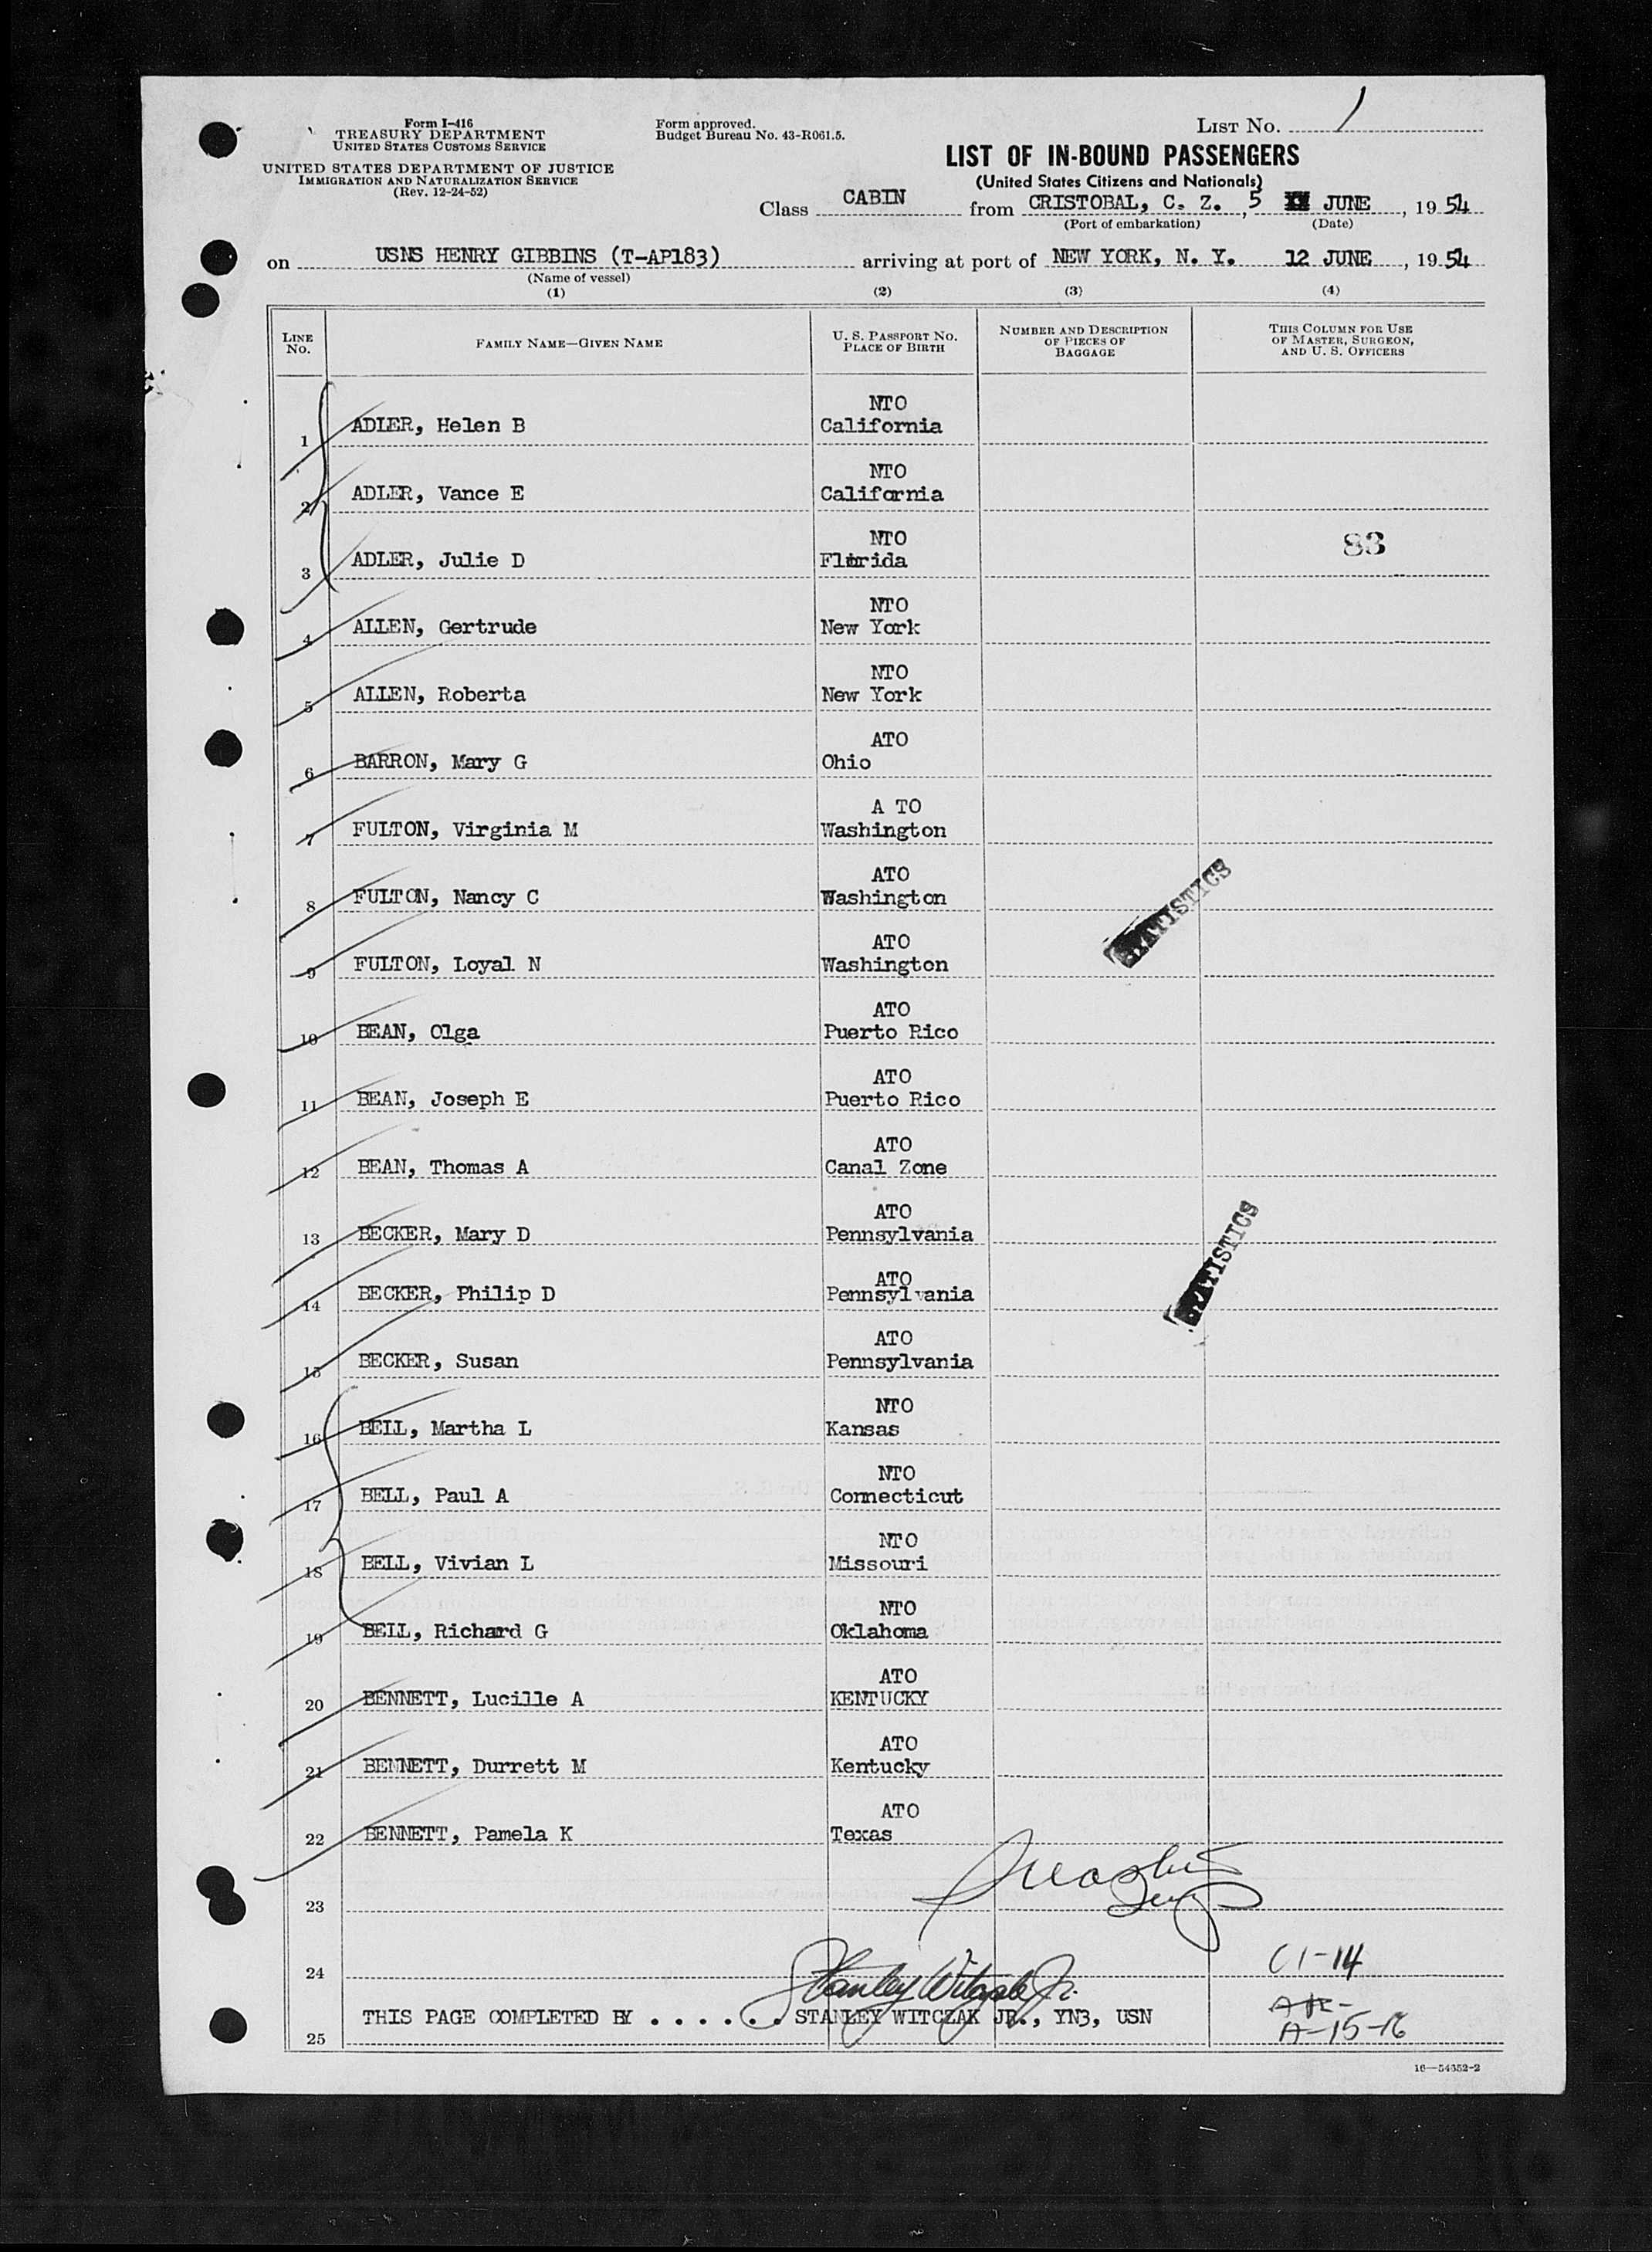 Form I-416
TREASURY DEPARTMENT
UNITED STATES CUSTOMS SERVICE
UNITED STATES DEPARTMENT OF JUSTICE
IMMIGRATION AND NATURALIZATION SERVICE
(Rev. 12-24-52)
Form approved.
Budget Bureau No. 43-R061.5.
LIST NO. 1
LIST OF IN-BOUND PASSENGERS
(United States Citizens and Nationals)
Class CABIN from CRISTOBAL, C. Z., 5 JUNE, 1954
(Port of embarkation) (Date)
on USNS HENRY GIBBINS (T-AP183) arriving at port of NEW YORK, N. Y. 12 JUNE, 1954
(Name of vessel)
(1) (2) (3) (4)
LINE NO.
FAMILY NAME—GIVEN NAME
U. S. PASSPORT NO.
PLACE OF BIRTH
NUMBER AND DESCRIPTION
OF PIECES OF
BAGGAGE
THIS COLUMN FOR USE
OF MASTER, SURGEON,
AND U. S. OFFICERS
NTO
1 ADLER, Helen B California
NTO
2 ADLER, Vance E California
NTO 83
3 ADLER, Julie D Florida
NTO
4 ALLEN, Gertrude New York
NTO
5 ALLEN, Roberta New York
ATO
6 BARRON, Mary G Ohio
A TO
7 FULTON, Virginia M Washington
ATO
8 FULTON, Nancy C Washington
STATISTICS
ATO
9 FULTON, Loyal N Washington
ATO
10 BEAN, Olga Puerto Rico
ATO
11 BEAN, Joseph E Puerto Rico
ATO
12 BEAN, Thomas A Canal Zone
ATO
13 BECKER, Mary D Pennsylvania
STATISTICS
ATO
14 BECKER, Philip D Pennsylvania
ATO
15 BECKER, Susan Pennsylvania
NTO
16 BELL, Martha L Kansas
NTO
17 BELL, Paul A Connecticut
NTO
18 BELL, Vivian L Missouri
NTO
19 BELL, Richard G Oklahoma
ATO
20 BENNETT, Lucille A KENTUCKY
ATO
21 BENNETT, Durrett M Kentucky
ATO
22 BENNETT, Pamela K Texas
23
24 Stanley Witczak Jr. C1-14
THIS PAGE COMPLETED BY . . . . . . STANLEY WITCZAK JR., YN3, USN
25 A-15-16
16—54652-2